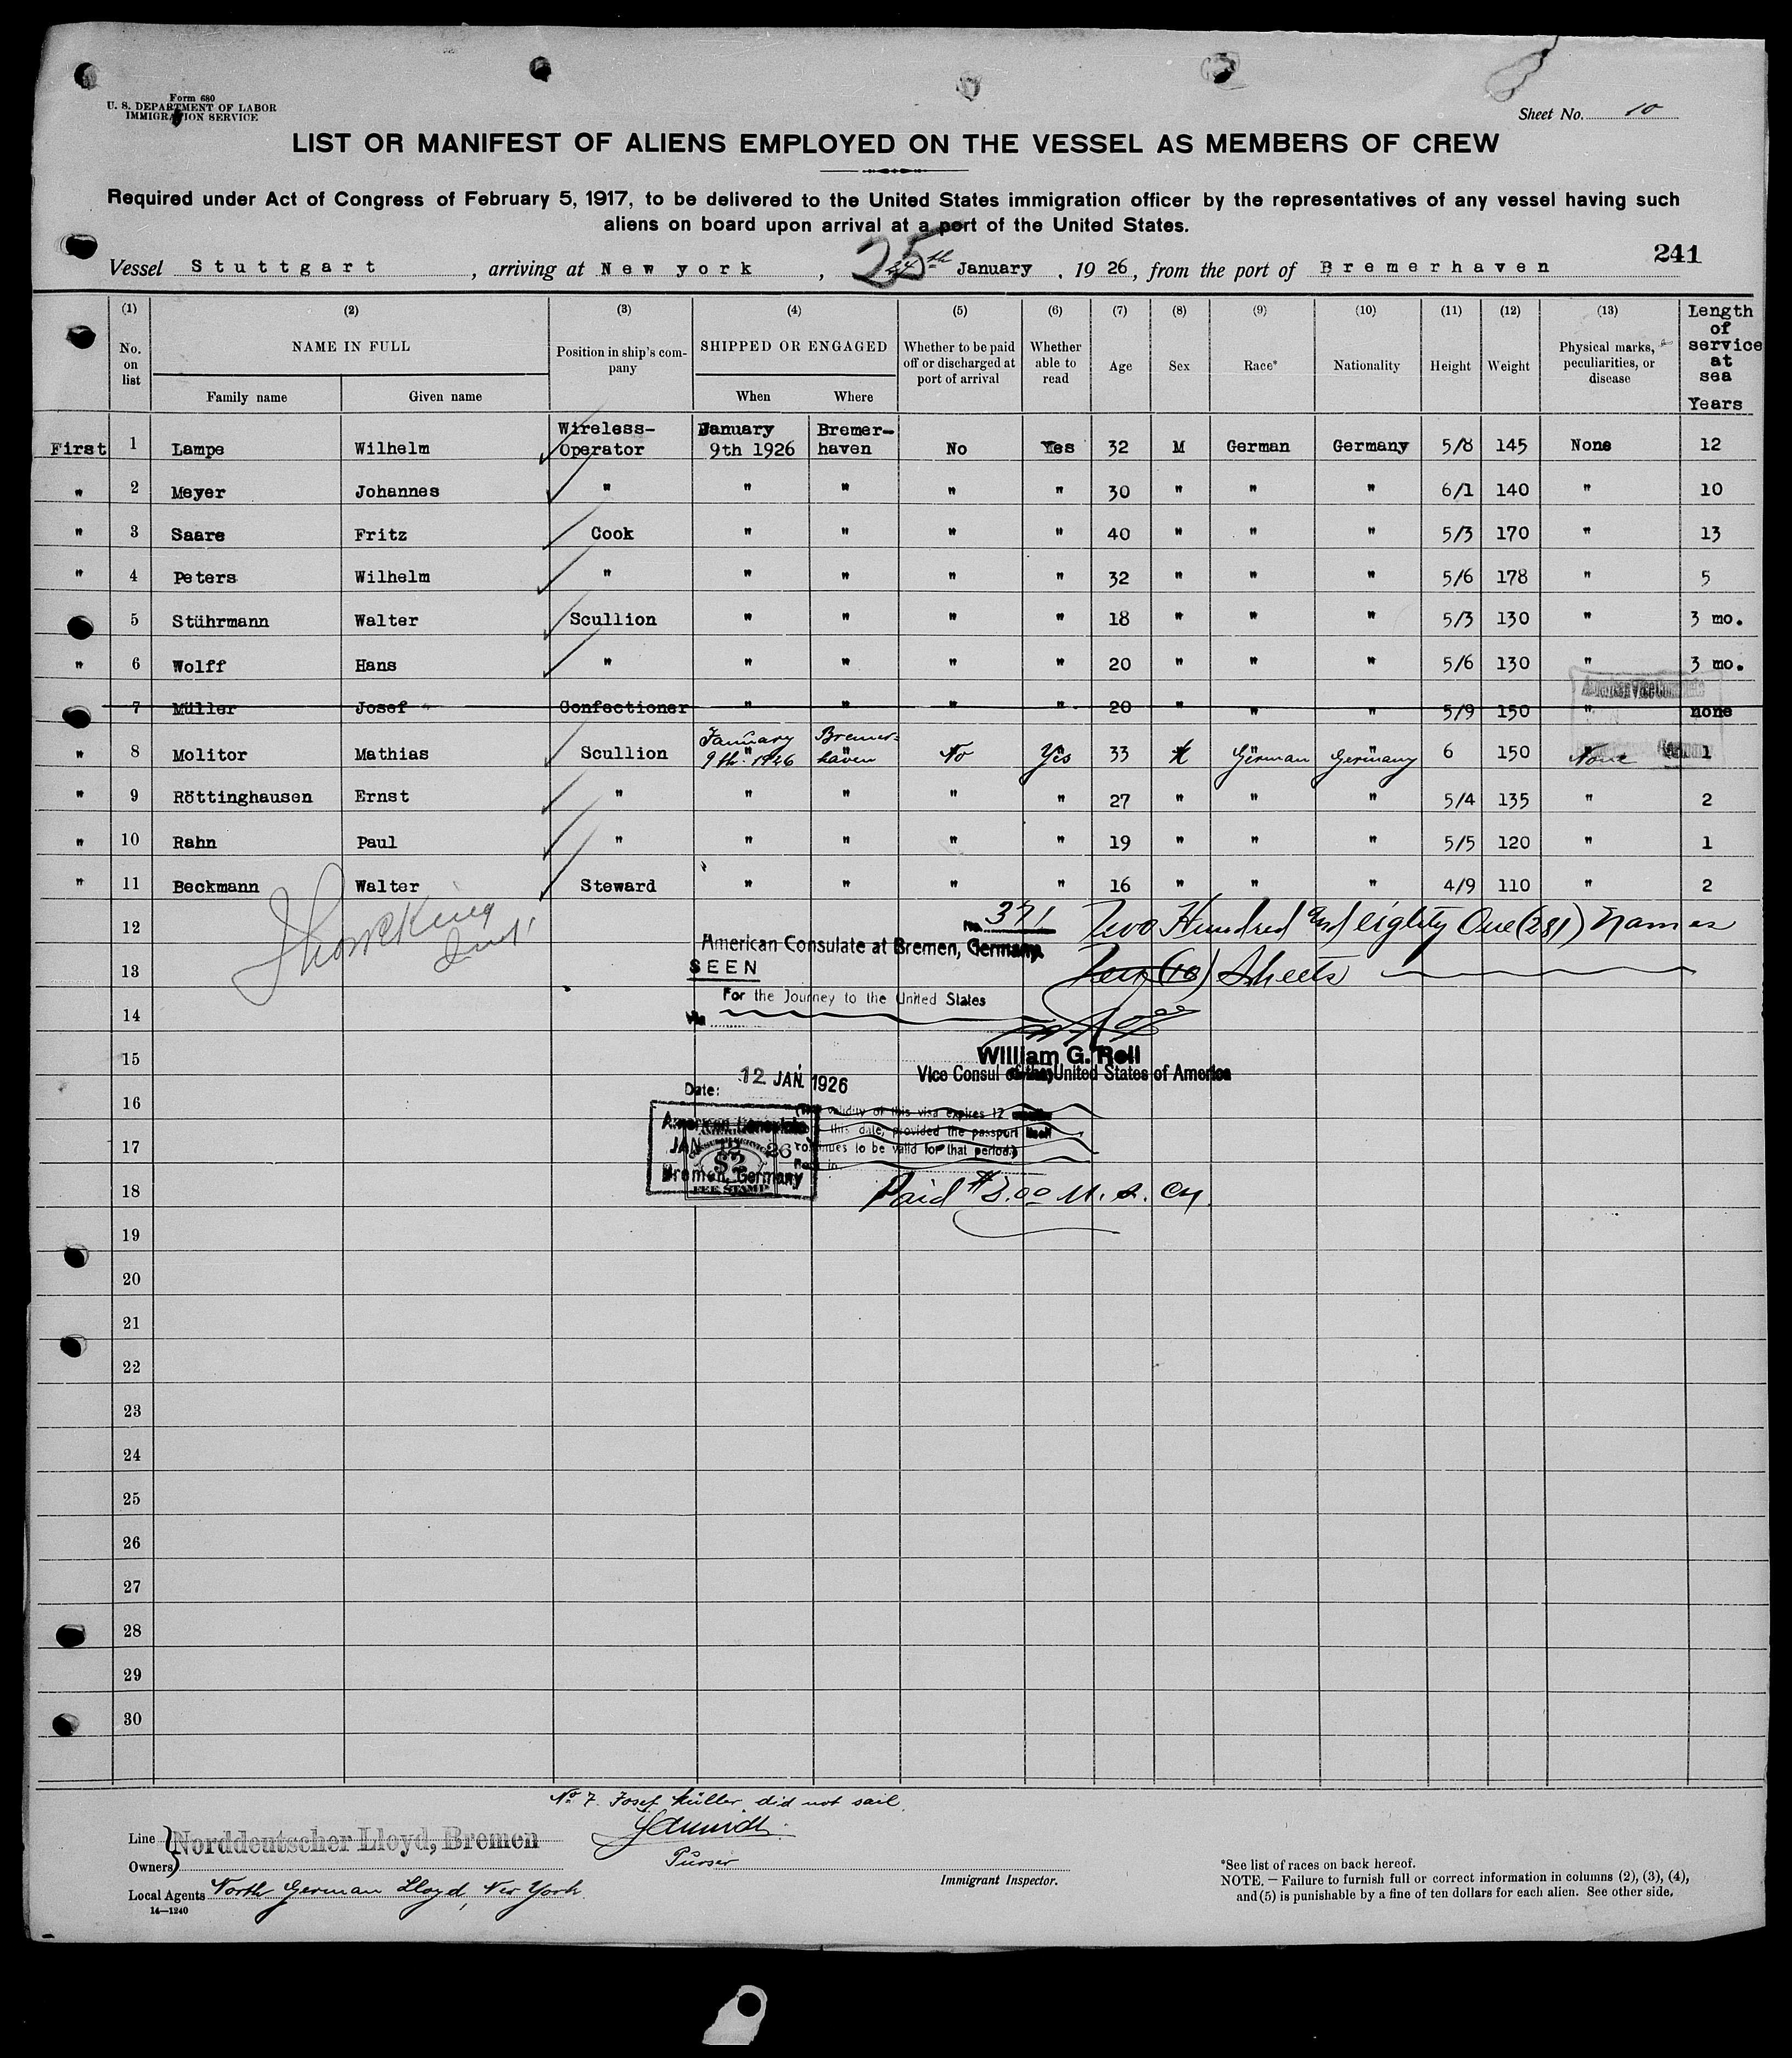 Form 680
U. S. DEPARTMENT OF LABOR
IMMIGRATION SERVICE
Sheet No. 10
LIST OR MANIFEST OF ALIENS EMPLOYED ON THE VESSEL AS MEMBERS OF CREW
Required under Act of Congress of February 5, 1917, to be delivered to the United States immigration officer by the representatives of any vessel having such
aliens on board upon arrival at a port of the United States.
241
Vessel Stuttgart, arriving at New york, 25th January, 1926, from the port of Bremerhaven
(1) (2) (3) (4) (5) (6) (7) (8) (9) (10) (11) (12) (13) Length of service at sea Years
No. on list NAME IN FULL Position in ship's company SHIPPED OR ENGAGED Whether to be paid off or discharged at port of arrival Whether able to read Age Sex Race* Nationality Height Weight Physical marks, peculiarities, or disease
Family name Given name When Where
First 1 Lampe Wilhelm Wireless-Operator January 9th 1926 Bremer-haven No Yes 32 M German Germany 5/8 145 None 12
" 2 Meyer Johannes " " " " " 30 " " " 6/1 140 " 10
" 3 Saare Fritz Cook " " " " 40 " " " 5/3 170 " 13
" 4 Peters Wilhelm " " " " " 32 " " " 5/6 178 " 5
5 Stührmann Walter Scullion " " " " 18 " " " 5/3 130 " 3 mo.
" 6 Wolff Hans " " " " " 20 " " " 5/6 130 " 3 mo.
American Vice Consulate
7 Müller Josef Confectioner " " " " 20 " " " 5/9 150 " none
" 8 Molitor Mathias Scullion January 9th. 1926 Bremer-haven No Yes 33 M German Germany 6 150 None 1
" 9 Röttinghausen Ernst " " " " " 27 " " " 5/4 135 " 2
" 10 Rahn Paul " " " " " 19 " " " 5/5 120 " 1
" 11 Beckmann Walter Steward " " " " 16 " " " 4/9 110 " 2
12 No. 371 Two Hundred and eighty One (281) names
American Consulate at Bremen, Germany.
13 SEEN Ten (10) Sheets
For the Journey to the United States
14 Via
15 William G. Roll
Vice Consul of the United States of America
Date: 12 JAN. 1926
16 (The validity of this visa expires 12 months
American Consulate this date, provided the passport itself
17 JAN 12 26 continues to be valid for that period.)
$2
Bremen, Germany
FEE STAMP
18 Paid $2.00 U. S. Cy.
19
20
21
22
23
24
25
26
27
28
29
30
No. 7. Josef Müller did not sail.
Schmidt
Line Norddeutscher Lloyd, Bremen
Purser
Owners
Immigrant Inspector.
Local Agents North German Lloyd, New York.
14—1240
*See list of races on back hereof.
NOTE. – Failure to furnish full or correct information in columns (2), (3), (4),
and (5) is punishable by a fine of ten dollars for each alien. See other side.